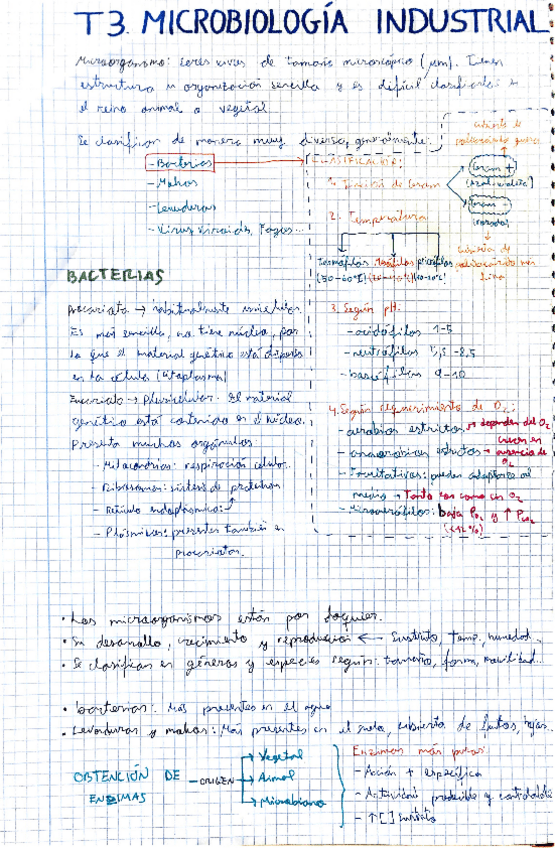 T3. MICROBIOLOGÍA INDUSTRIAL
Microorganismo: seres vivos de tamaño microscópico (µm). Tienen
estructura u organización sencilla y es difícil clasificarlos en
el reino animal o vegetal
Se clasifican de manera muy diversa, generalmente:
- Bacterias
- Mohos
- Levaduras
- Virus, viroids, Fagos...
CLASIFICACIÓN:
1. Tinción de Gram
Gram +
Gram -
(rosado)
2. Temperatura
Termófilos Mesófilos psicrófilos
3. Según pH:
- acidófilos 1-5
- neutrófilos 5,5-8,5
- basófilos 9-10
4. Según requerimiento de O2:
- aerobios estrictos → dependen del O2
- anaerobios estrictos → crecen en ausencia de O2
- Facultativas: pueden adaptarse al
medio → Tanto con como sin O2
- Microaerófilos: baja PO2 y ↑ PCO2
(<12%)
BACTERIAS
Procariota → habitualmente unicelular.
Es más sencilla, no tiene núcleo, por
lo que el material genético está disperso
en la célula (citoplasma)
Eucariota → Pluricelular. El material
genético está contenido en el núcleo.
Presenta muchos orgánulos:
- Mitocondrias: respiración celular.
- Ribosomas: síntesis de proteínas
- Retículo endoplasmático:
- Plásmidos: presentes también en
procariotas.
• Los microorganismos están por doquier.
• Su desarrollo, crecimiento y reproducción ← Sustrato, temp, humedad...
• Se clasifican en géneros y especies según: tamaño, forma, movilidad...
• bacterias: Más presentes en el agua
• Levaduras y mohos: Más presentes en el suelo, cubierta de frutos, hojas...
OBTENCIÓN DE
ENZIMAS
- ORIGEN
Vegetal
Animal
Microbiano
Enzimas más puras:
- Acción + específica
- Actividad predecible y controlable
- ↑[ ] Sustrato